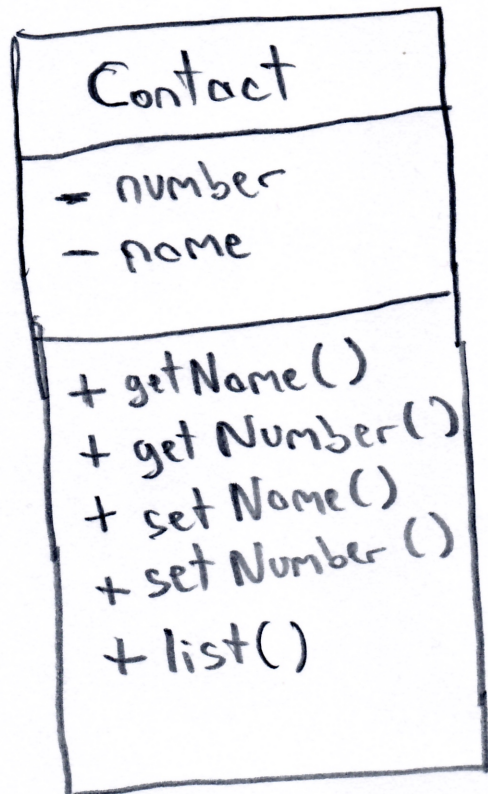 Contact
- number
- name
+ getName()
+ getNumber()
+ setName()
+ setNumber()
+ list()